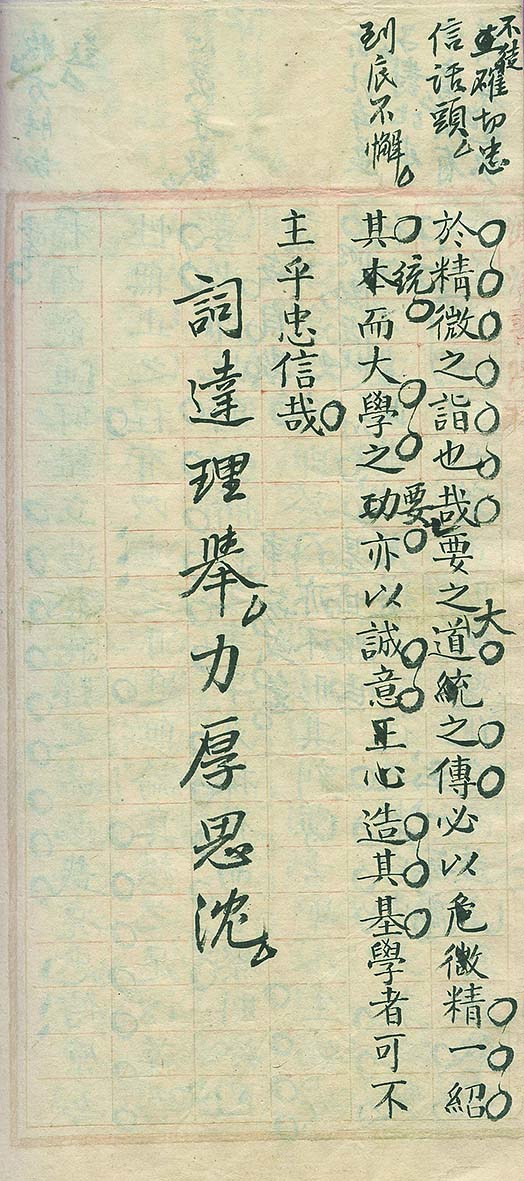 不徒
直確切忠
信話頭
到底不懈
於精微之詣也哉要之大道統之傳必以危微精一紹
其統而大學之要功亦以誠意正心造其基學者可不
主乎忠信哉
詞達理舉力厚思沈